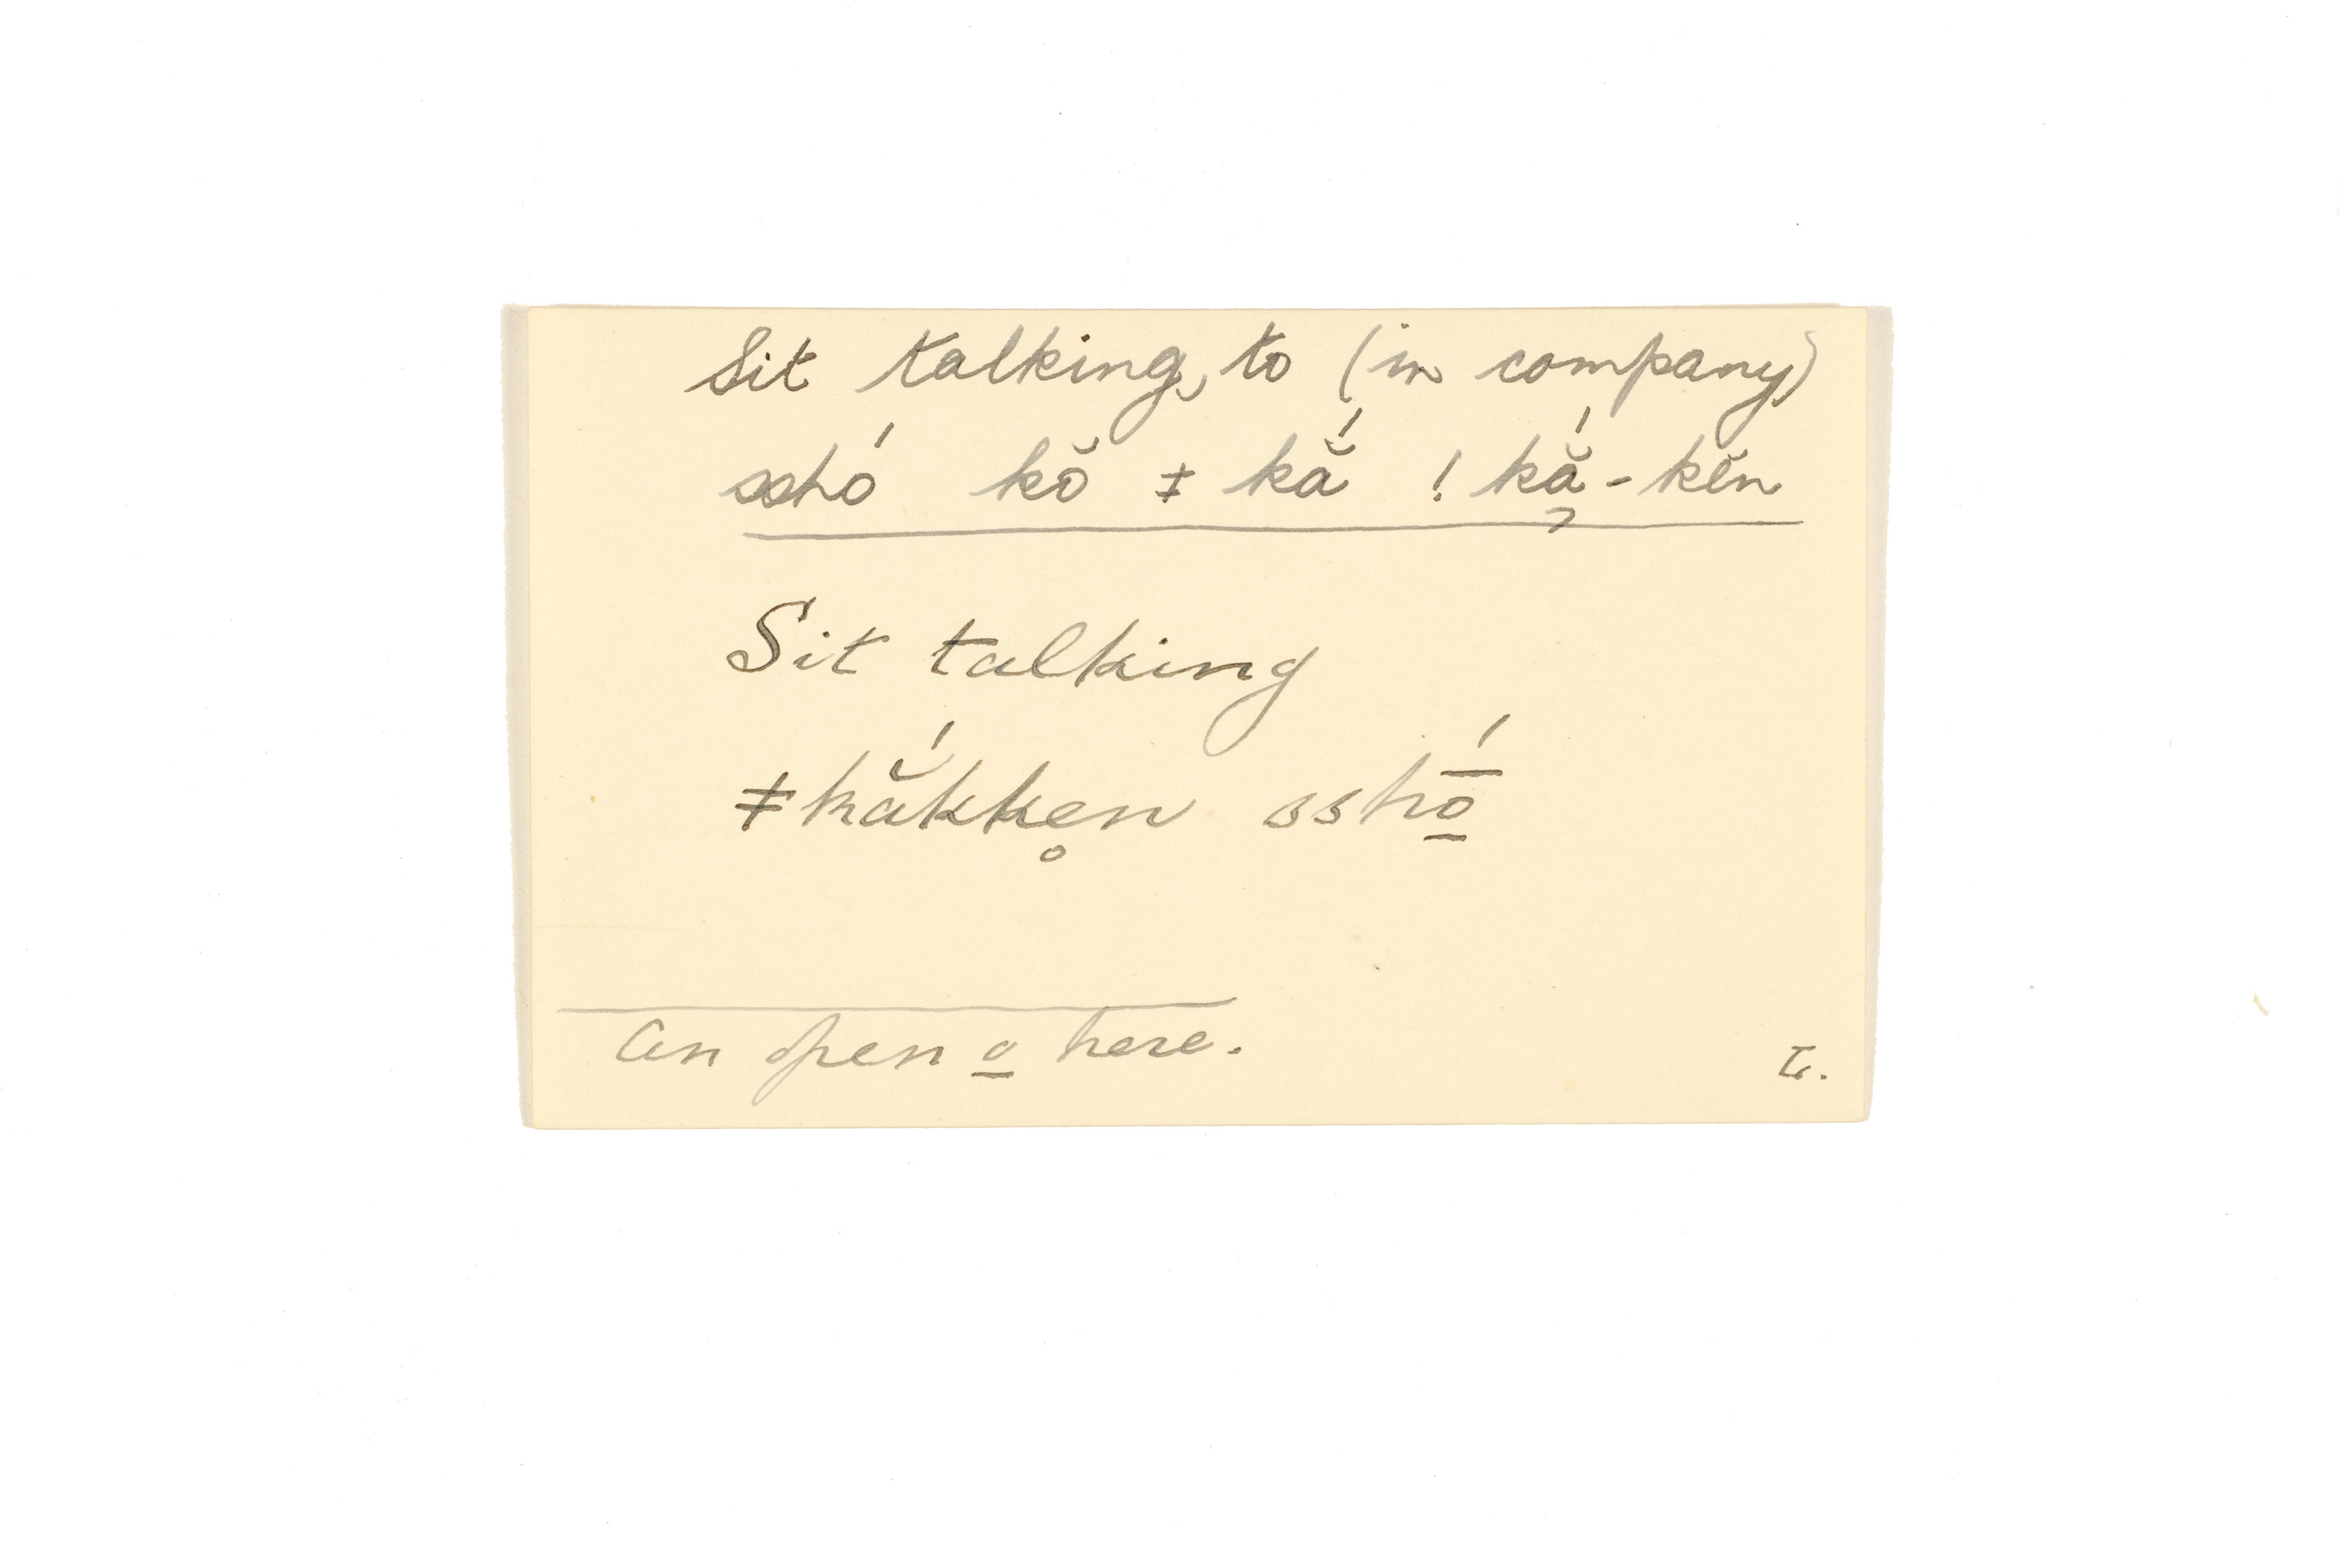 Sit talking, to (in company)
sshó kŏ ǂ kắ ! kắ̡ - kĕn
Sit talking
ǂkắkke̥n sshṓ̠
An open o̠ here.